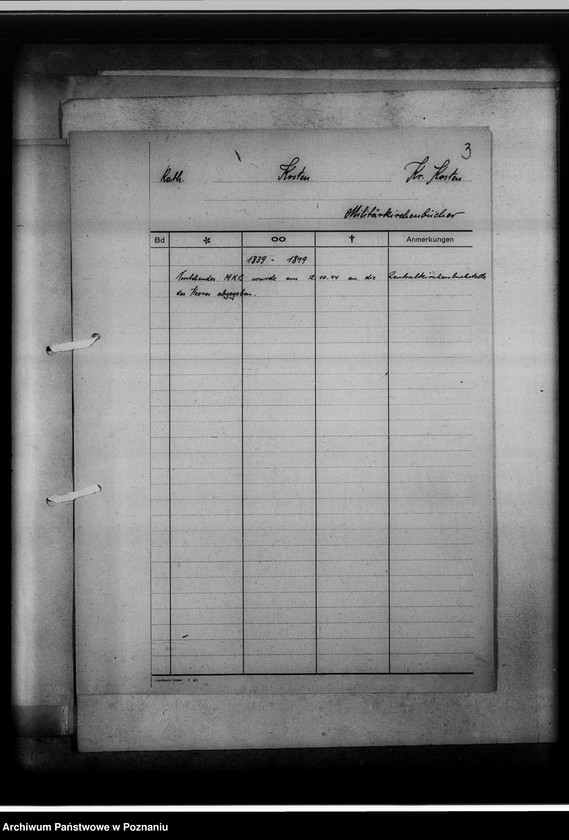 3
Kath. Kosten Kr. Kosten
Militärkirchenbücher
Bd * ∞ † Anmerkungen
1839 - 1849
Vorstehendes MKB wurde am 12.10.44 an die Zentralkirchenbuchstelle
des Heeres abgegeben.
Archiwum Państwowe w Poznaniu